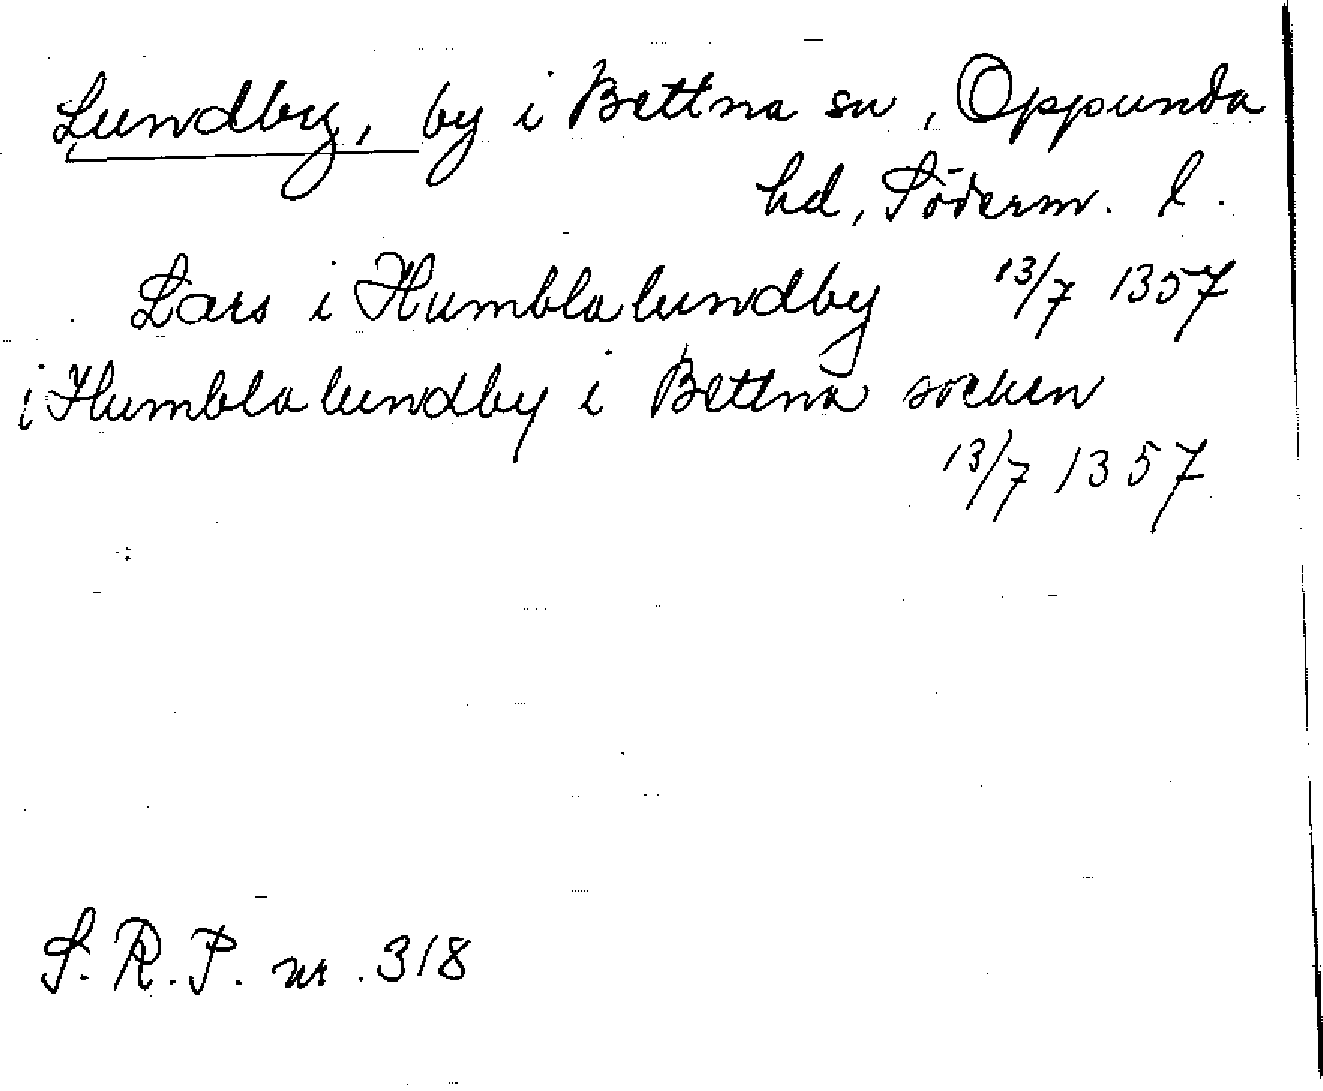 Lundby, by i Bettna sn, Oppunda
hd, Söderm. l.
Lars i Humblalundby 13/7 1357
i Humblalundby i Bettna socken
13/7 1357
S.R.P. nr. 318